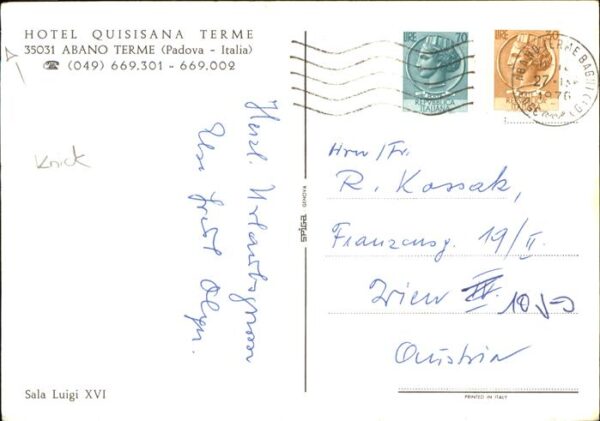 HOTEL QUISISANA TERME
35031 ABANO TERME (Padova - Italia)
☎ (049) 669.301 - 669.002
Knick
Herzl. Urlaubsgrüsse
Sala Luigi XVI
spiga GENOVA
LIRE 70
REPVBBLICA
ITALIANA
LIRE 30
ABANO TERME BAGNI
27
1976
Hrn/Fr.
R. Kossak,
Franzensg. 19/II
Wien 1050
Austria
PRINTED IN ITALY